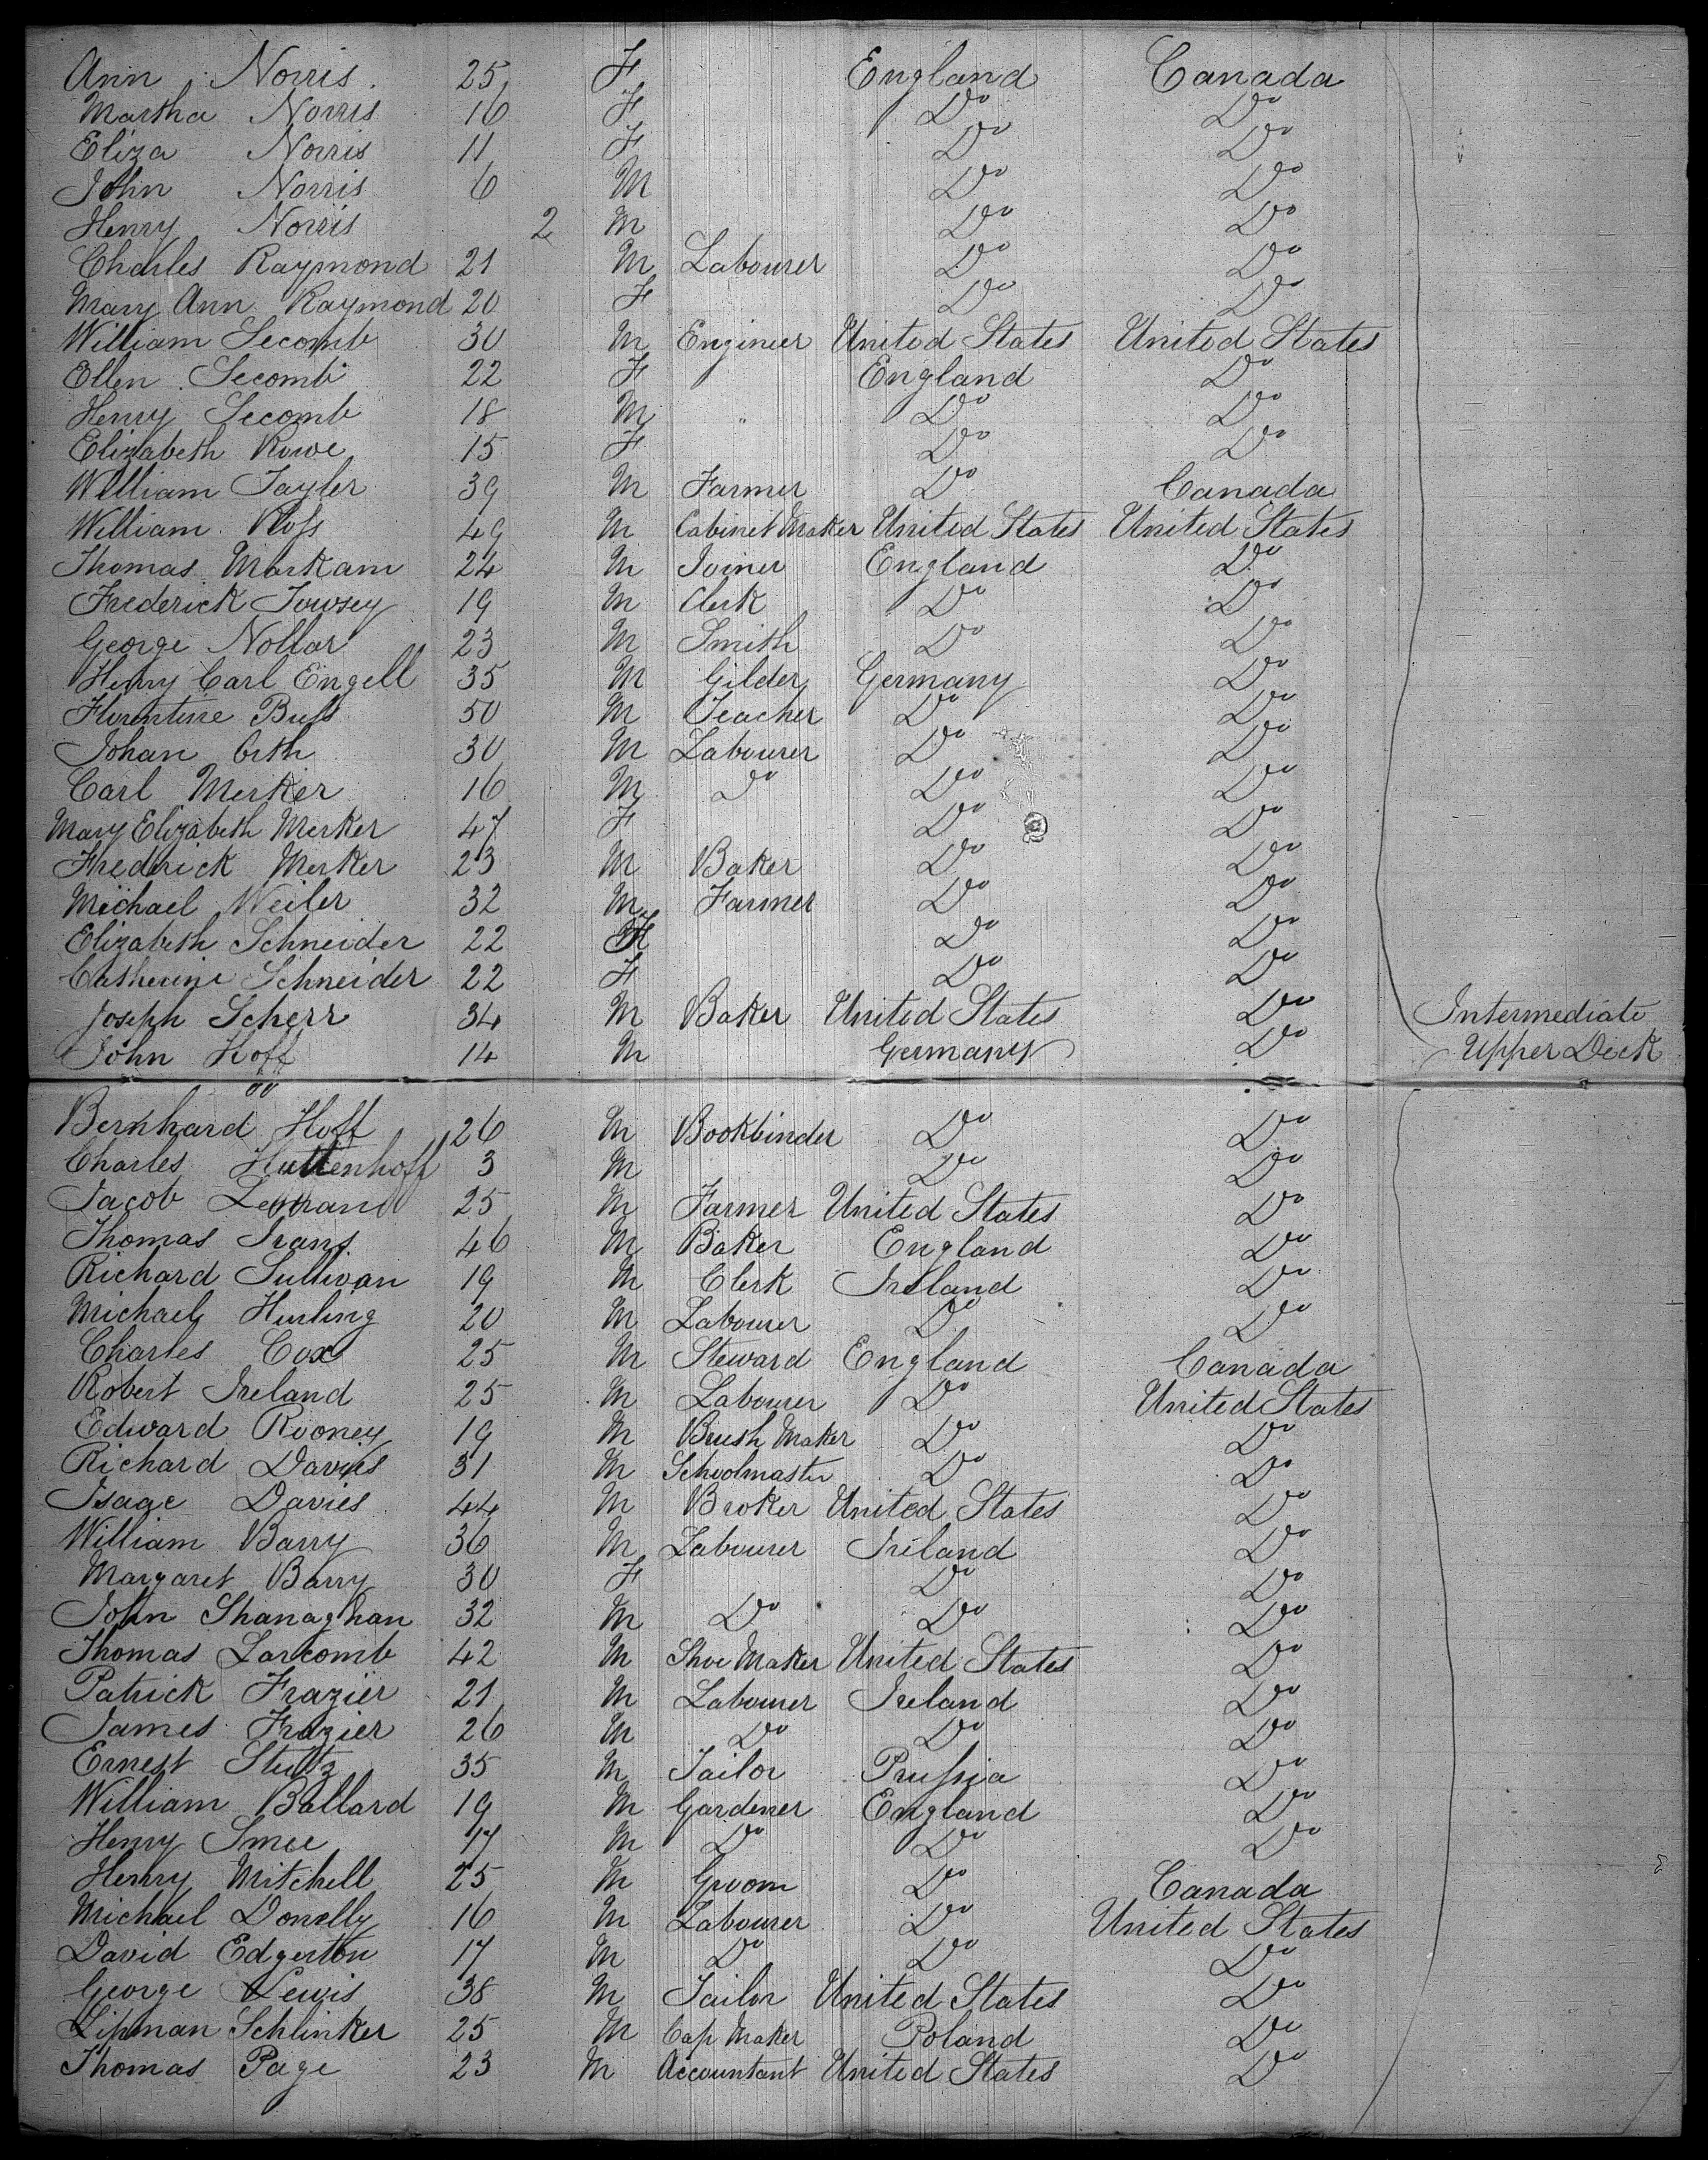 Ann Norris 25 F England Canada
Martha Norris 16 F Do Do
Eliza Norris 11 F Do Do
John Norris 6 M Do Do
Henry Norris 2 M Do Do
Charles Raymond 21 M Labourer Do Do
Mary Ann Raymond 20 F Do Do
William Secomb 30 M Engineer United States United States
Ellen Secomb 22 F England Do
Henry Secomb 18 M " Do Do
Elizabeth Rowe 15 F Do Do
William Tayler 39 M Farmer Do Canada
William Ross 49 M Cabinet Maker United States United States
Thomas Markam 24 M Joiner England Do
Frederick Towsey 19 M Clerk Do Do
George Nollar 23 M Smith Do Do
Henry Carl Engell 35 M Gilder Germany Do
Florentine Buss 50 M Teacher Do Do
Johan 30 M Labourer Do Do
Carl Merker 16 M Do Do Do
Mary Elizabeth Merker 47 F Do Do
Frederick Merker 23 M Baker Do Do
Michael Weiler 32 M Farmer Do Do
Elizabeth Schneider 22 F Do Do
Catherine Schneider 22 F Do Do
Joseph Scherr 34 M Baker United States Do Intermediate
John Hoff 14 M Germany Do Upper Deck
Bernhard Hoff 26 M Bookbinder Do Do
Charles Huttenhoff 3 M Do Do
Jacob 25 M Farmer United States Do
Thomas 46 M Baker England Do
Richard Sullivan 19 M Clerk Ireland Do
Michael Hurling 20 M Labourer Do Do
Charles Cox 25 M Steward England Canada
Robert Ireland 25 M Labourer Do United States
Edward Rooney 19 M Brush Maker Do Do
Richard Davies 31 M Schoolmaster Do Do
Isaac Davies 44 M Broker United States Do
William Barry 36 M Labourer Ireland Do
Margaret Barry 30 F Do Do
John Shanaghan 32 M Do Do Do
Thomas Larcomb 42 M Shoe Maker United States Do
Patrick Frazier 21 M Labourer Ireland Do
James Frazier 26 M Do Do Do
Ernest Stultz 35 M Tailor Prussia Do
William Ballard 19 M Gardener England Do
Henry Smee 17 M Do Do Do
Henry Mitchell 25 M Groom Do Canada
Michael Donelly 16 M Labourer Do United States
David Edgerton 17 M Do Do Do
George Lewis 38 M Tailor United States Do
Lipman Schlinker 25 M Cap Maker Poland Do
Thomas Page 23 M Accountant United States Do